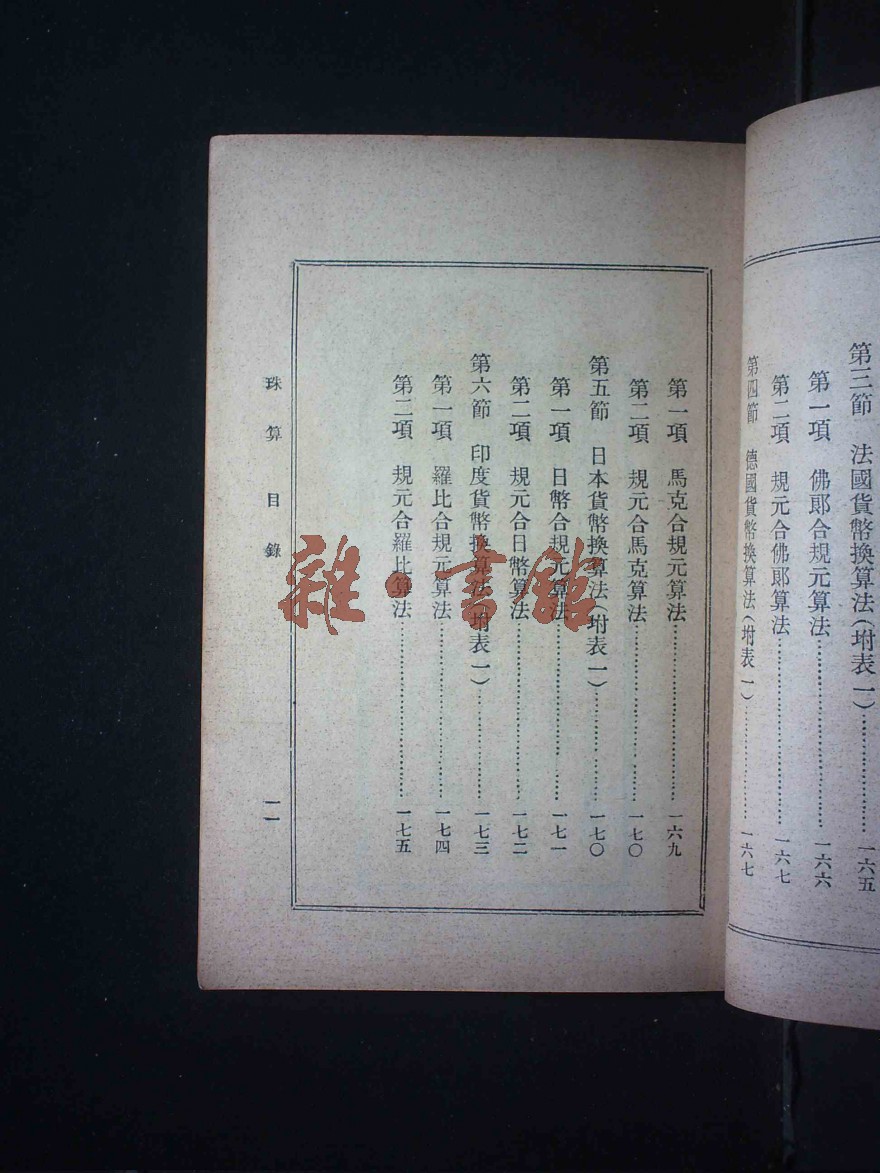 第三節　法國貨幣換算法（坿表一）……………一六五
第一項　佛郎合規元算法……………一六六
第二項　規元合佛郎算法……………一六七
第四節　德國貨幣換算法（坿表一）……………一六七
第一項　馬克合規元算法……………一六九
第二項　規元合馬克算法……………一七〇
第五節　日本貨幣換算法（坿表一）……………一七〇
第一項　日幣合規元算法……………一七一
第二項　規元合日幣算法……………一七二
第六節　印度貨幣換算法（坿表一）……………一七三
第一項　羅比合規元算法……………一七四
第二項　規元合羅比算法……………一七五
珠算目錄
一一
雜·書館